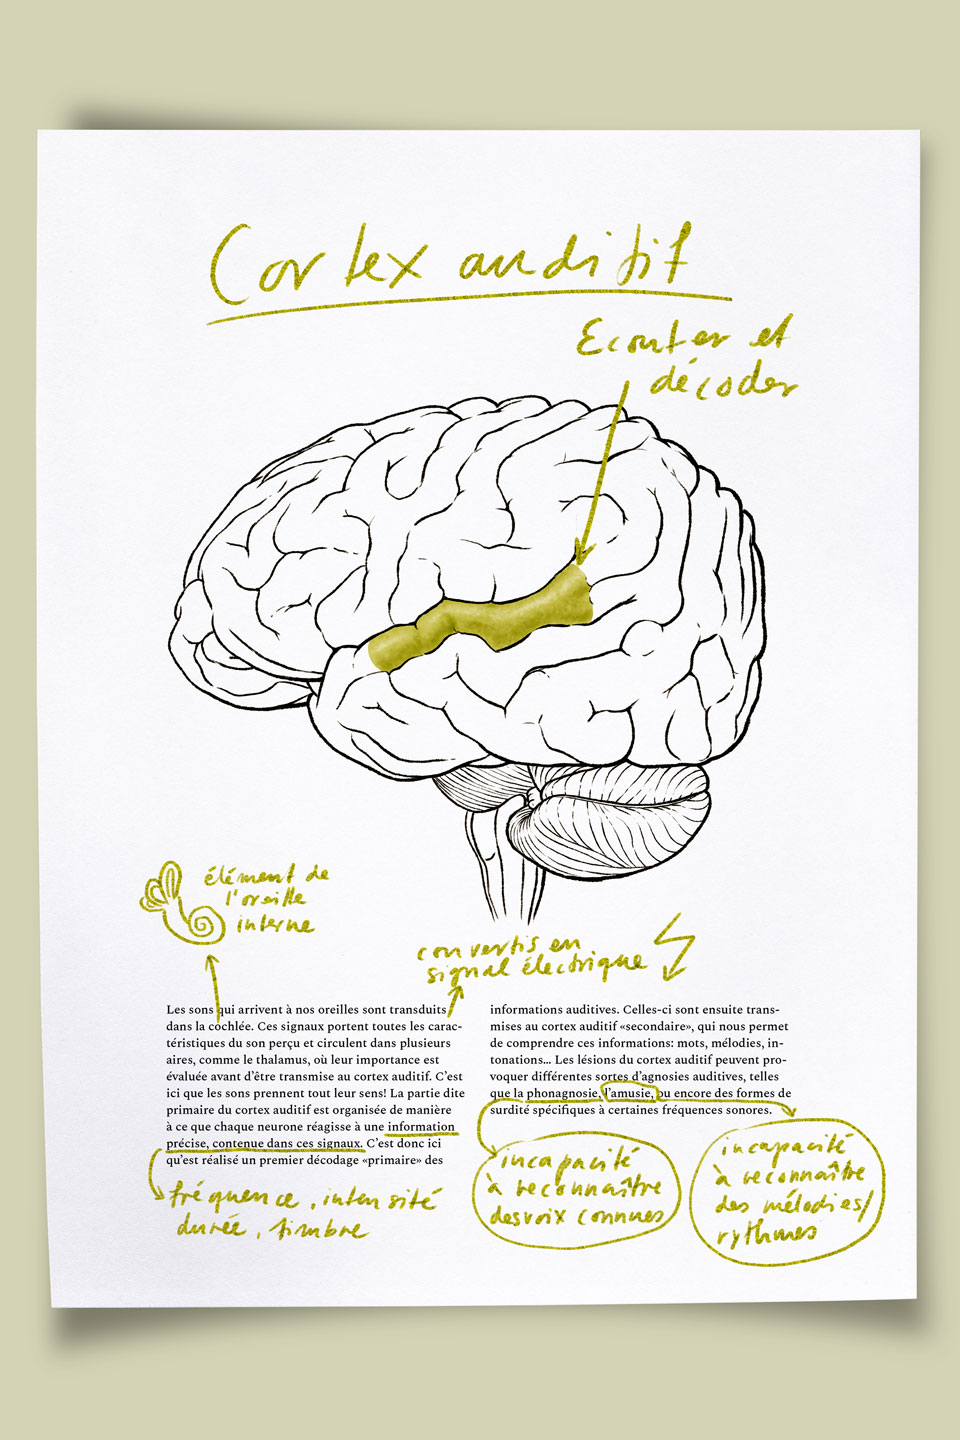 Cortex auditif
Ecouter et
décoder
élément de
l'oreille
interne
convertis en
signal électrique
Les sons qui arrivent à nos oreilles sont transduits
dans la cochlée. Ces signaux portent toutes les carac-
téristiques du son perçu et circulent dans plusieurs
aires, comme le thalamus, où leur importance est
évaluée avant d'être transmise au cortex auditif. C'est
ici que les sons prennent tout leur sens! La partie dite
primaire du cortex auditif est organisée de manière
à ce que chaque neurone réagisse à une information
précise, contenue dans ces signaux. C'est donc ici
qu'est réalisé un premier décodage «primaire» des
informations auditives. Celles-ci sont ensuite trans-
mises au cortex auditif «secondaire», qui nous permet
de comprendre ces informations: mots, mélodies, in-
tonations... Les lésions du cortex auditif peuvent pro-
voquer différentes sortes d'agnosies auditives, telles
que la phonagnosie, l'amusie, ou encore des formes de
surdité spécifiques à certaines fréquences sonores.
fréquence, intensité
durée, timbre
incapacité
à reconnaître
des voix connues
incapacité
à reconnaître
des mélodies/
rythmes